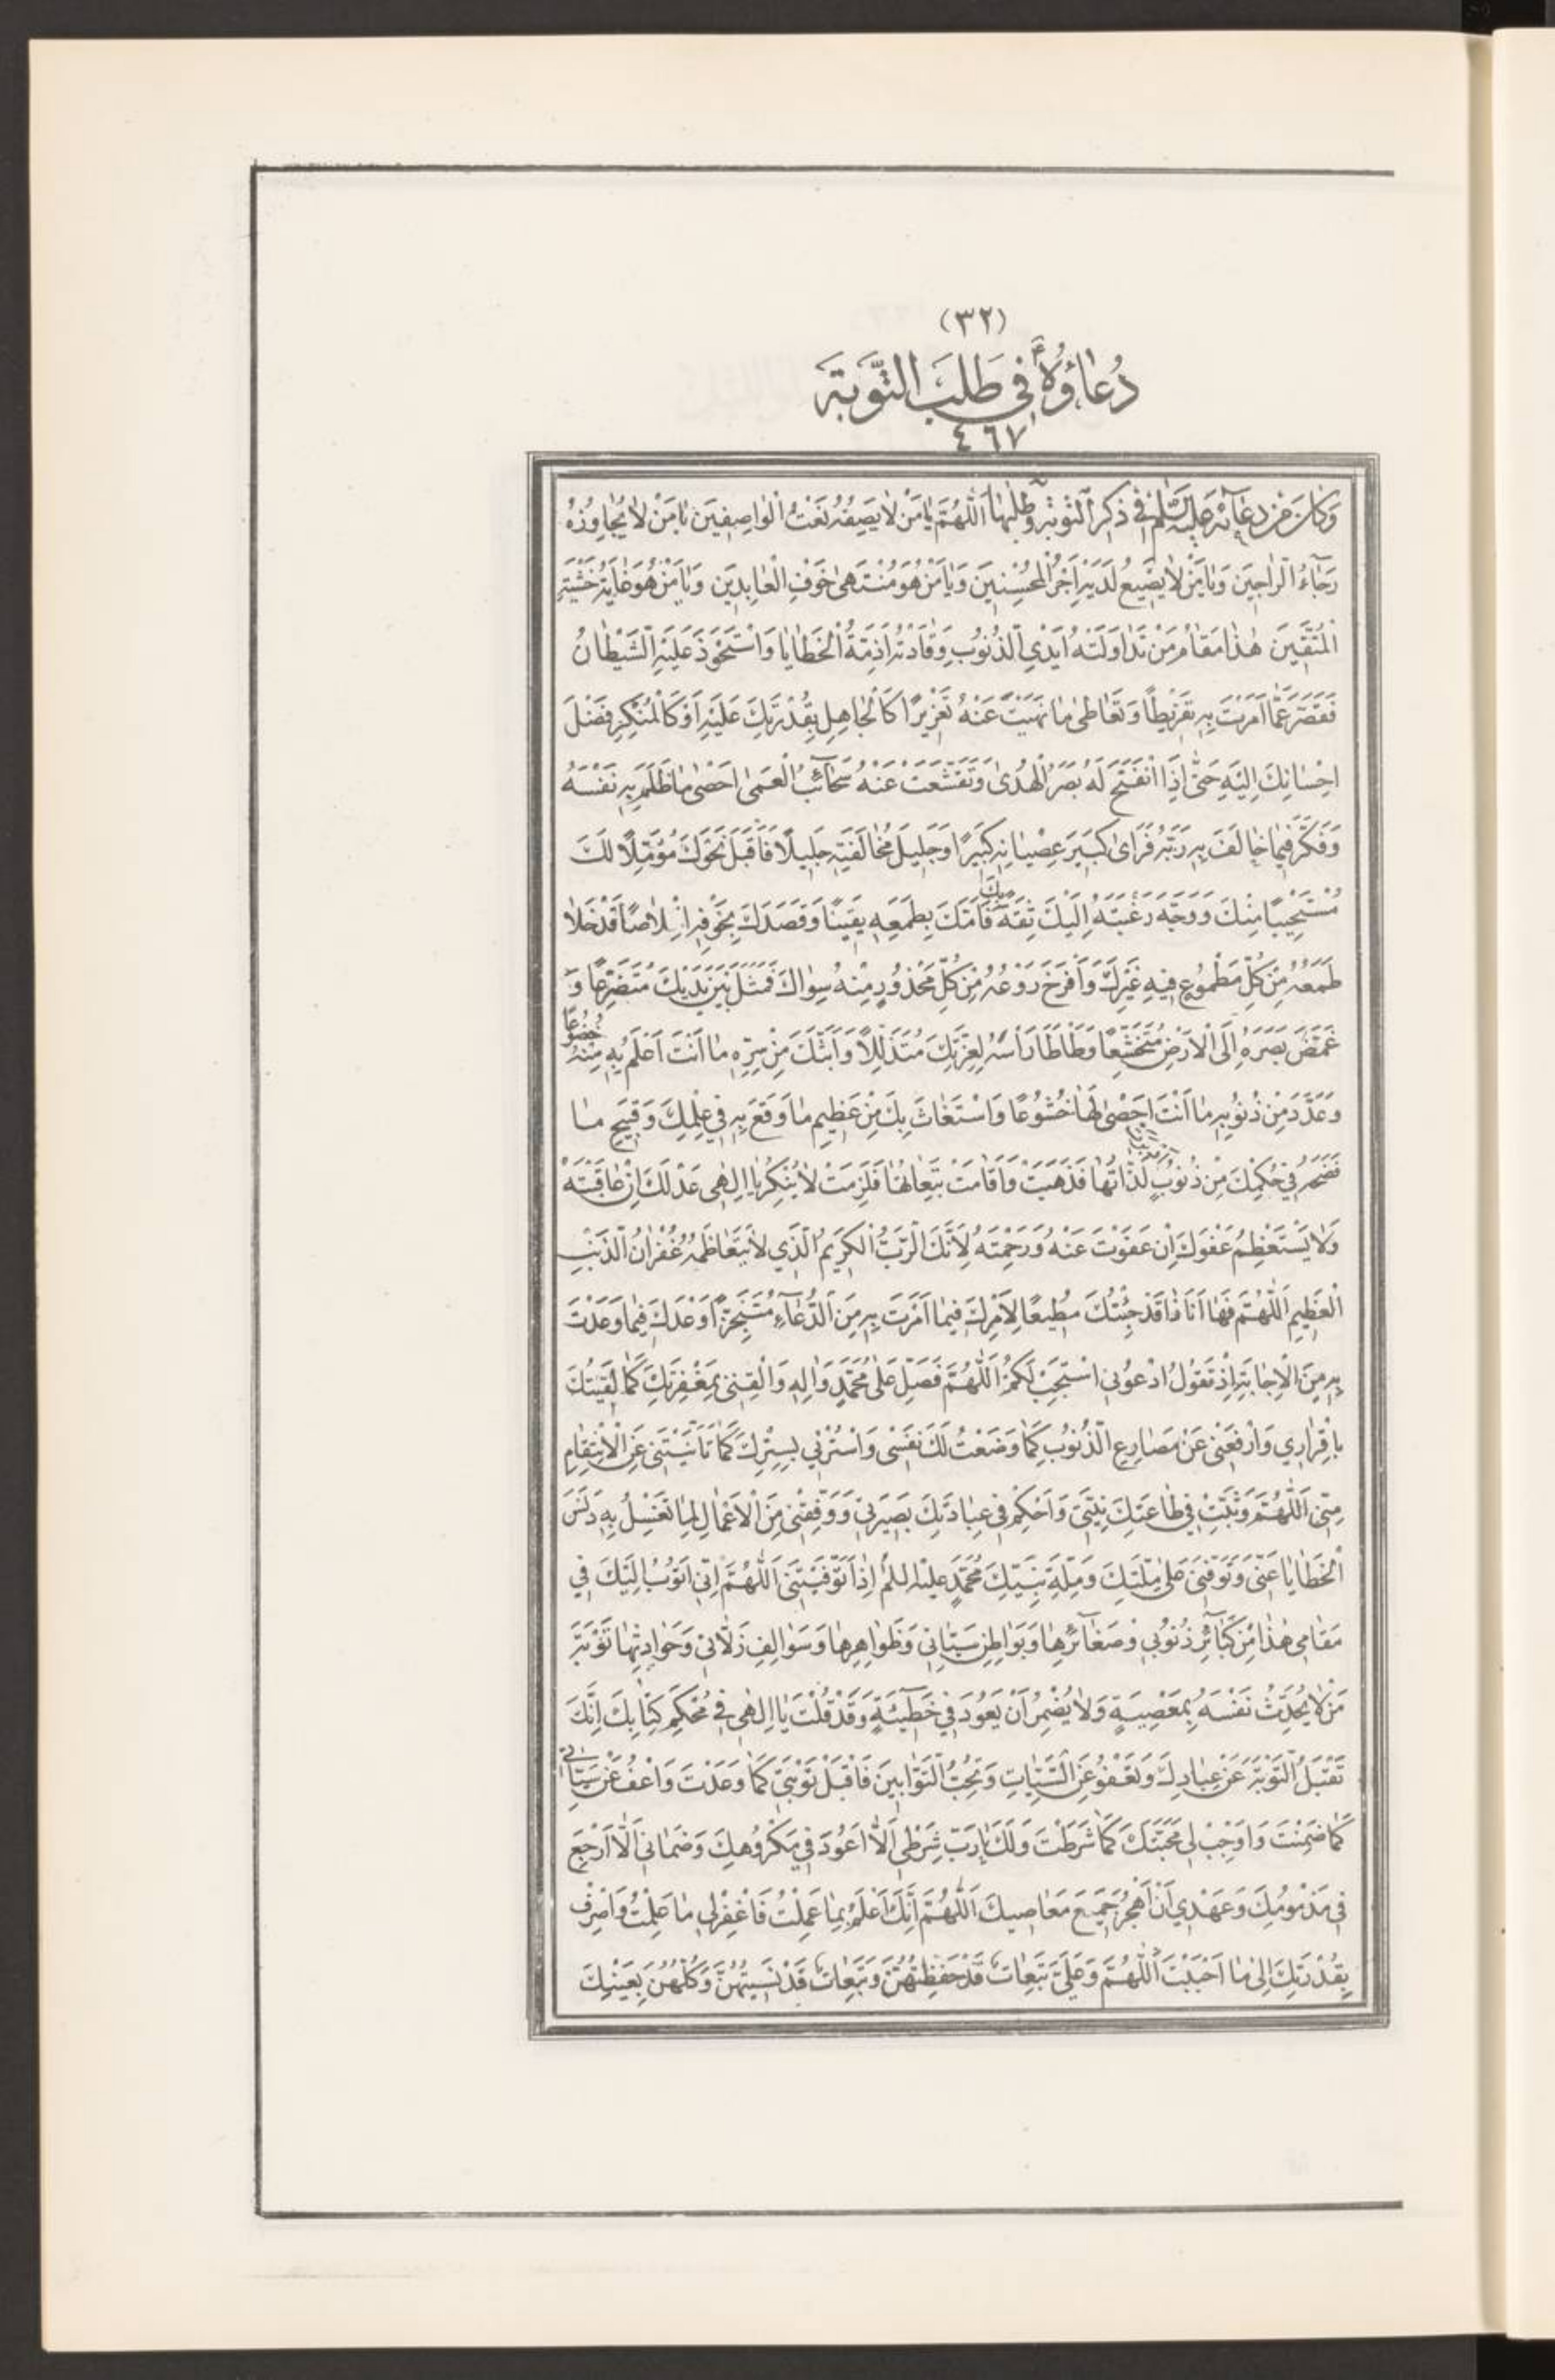 (٣٢)
دُعَاؤُهُ فِي طَلَبِ التَّوْبَةِ
٤٦٧
وَكَانَ مِنْ دُعَائِهِ عَلَيْهِ السَّلَامُ فِي ذِكْرِ التَّوْبَةِ وَطَلَبِهَا اَللّٰهُمَّ يَا مَنْ لَا يَصِفُهُ نَعْتُ الْوَاصِفِينَ يَا مَنْ لَا يُجَاوِزُهُ
رَجَاءُ الرَّاجِينَ وَيَا مَنْ لَا يَضِيعُ لَدَيْهِ اَجْرُ الْمُحْسِنِينَ وَيَا مَنْ هُوَ مُنْتَهىٰ خَوْفِ الْعَابِدِينَ وَيَا مَنْ هُوَ غَايَةُ خَشْيَةِ
الْمُتَّقِينَ هٰذَا مَقَامُ مَنْ تَدَاوَلَتْهُ اَيْدِي الذُّنُوبِ وَقَادَتْهُ اَزِمَّةُ الْخَطَايَا وَاسْتَحْوَذَ عَلَيْهِ الشَّيْطَانُ
فَقَصَّرَ عَمَّا اَمَرْتَ بِهِ تَفْرِيطًا وَتَعَاطىٰ مَا نَهَيْتَ عَنْهُ تَعْزِيرًا كَالْجَاهِلِ بِقُدْرَتِكَ عَلَيْهِ اَوْ كَالْمُنْكِرِ فَضْلَ
اِحْسَانِكَ اِلَيْهِ حَتّىٰ اِذَا انْفَتَحَ لَهُ بَصَرُ الْهُدىٰ وَتَقَشَّعَتْ عَنْهُ سَحَائِبُ الْعَمىٰ اَحْصىٰ مَا ظَلَمَ بِهِ نَفْسَهُ
وَفَكَّرَ فِيمَا خَالَفَ بِهِ رَبَّهُ فَرَاىٰ كَبِيرَ عِصْيَانِهِ كَبِيرًا وَجَلِيلَ مُخَالَفَتِهِ جَلِيلًا فَاَقْبَلَ نَحْوَكَ مُؤَمِّلًا لَكَ
مُسْتَحْيِيًا مِنْكَ وَوَجَّهَ رَغْبَتَهُ اِلَيْكَ ثِقَةً بِكَ فَاَمَّكَ بِطَمَعِهِ يَقِينًا وَقَصَدَكَ بِخَوْفِهِ اِخْلَاصًا قَدْ خَلَا
طَمَعُهُ مِنْ كُلِّ مَطْمُوعٍ فِيهِ غَيْرِكَ وَاَفْرَخَ رَوْعُهُ مِنْ كُلِّ مَحْذُورٍ مِنْهُ سِوَاكَ فَمَثُلَ بَيْنَ يَدَيْكَ مُتَضَرِّعًا وَ
غَمَّضَ بَصَرَهُ اِلَى الْاَرْضِ مُتَخَشِّعًا وَطَأْطَأَ رَأْسَهُ لِعِزَّتِكَ مُتَذَلِّلًا وَاَبَثَّكَ مِنْ سِرِّهِ مَا اَنْتَ اَعْلَمُ بِهِ مِنْهُ خُضُوعًا
وَعَدَّدَ مِنْ ذُنُوبِهِ مَا اَنْتَ اَحْصىٰ لَهَا خُشُوعًا وَاسْتَغَاثَ بِكَ مِنْ عَظِيمِ مَا وَقَعَ بِهِ فِي عِلْمِكَ وَقَبِيحِ مَا
فَضَحَهُ فِي حُكْمِكَ مِنْ ذُنُوبٍ اَدْبَرَتْ لَذَّاتُهَا فَذَهَبَتْ وَاَقَامَتْ تَبِعَاتُهَا فَلَزِمَتْ لَا يُنْكِرُ يَا اِلٰهِي عَدْلَكَ اِنْ عَاقَبْتَهُ
وَلَا يَسْتَعْظِمُ عَفْوَكَ اِنْ عَفَوْتَ عَنْهُ وَرَحِمْتَهُ لِاَنَّكَ الرَّبُّ الْكَرِيمُ الَّذِي لَا يَتَعَاظَمُهُ غُفْرَانُ الذَّنْبِ
الْعَظِيمِ اَللّٰهُمَّ فَهَا اَنَا ذَا قَدْ جِئْتُكَ مُطِيعًا لِاَمْرِكَ فِيمَا اَمَرْتَ بِهِ مِنَ الدُّعَاءِ مُتَنَجِّزًا وَعْدَكَ فِيمَا وَعَدْتَ
بِهِ مِنَ الْاِجَابَةِ اِذْ تَقُولُ ادْعُونِي اَسْتَجِبْ لَكُمْ اَللّٰهُمَّ فَصَلِّ عَلىٰ مُحَمَّدٍ وَاٰلِهِ وَالْقَنِي بِمَغْفِرَتِكَ كَمَا لَقِيتُكَ
بِاِقْرَارِي وَارْفَعْنِي عَنْ مَصَارِعِ الذُّنُوبِ كَمَا وَضَعْتُ لَكَ نَفْسِي وَاسْتُرْنِي بِسِتْرِكَ كَمَا تَأَنَّيْتَنِي عَنِ الْاِنْتِقَامِ
مِنِّي اَللّٰهُمَّ وَثَبِّتْ فِي طَاعَتِكَ نِيَّتِي وَاَحْكِمْ فِي عِبَادَتِكَ بَصِيرَتِي وَوَفِّقْنِي مِنَ الْاَعْمَالِ لِمَا تَغْسِلُ بِهِ دَنَسَ
الْخَطَايَا عَنِّي وَتَوَفَّنِي عَلىٰ مِلَّتِكَ وَمِلَّةِ نَبِيِّكَ مُحَمَّدٍ عليه السلم اِذَا تَوَفَّيْتَنِي اَللّٰهُمَّ اِنِّي اَتُوبُ اِلَيْكَ فِي
مَقَامِي هٰذَا مِنْ كَبَائِرِ ذُنُوبِي وَصَغَائِرِهَا وَبَوَاطِنِ سَيِّئَاتِي وَظَوَاهِرِهَا وَسَوَالِفِ زَلَّاتِي وَحَوَادِثِهَا تَوْبَةَ
مَنْ لَا يُحَدِّثُ نَفْسَهُ بِمَعْصِيَةٍ وَلَا يُضْمِرُ اَنْ يَعُودَ فِي خَطِيئَةٍ وَقَدْ قُلْتَ يَا اِلٰهِي فِي مُحْكَمِ كِتَابِكَ اِنَّكَ
تَقْبَلُ التَّوْبَةَ عَنْ عِبَادِكَ وَتَعْفُو عَنِ السَّيِّئَاتِ وَتُحِبُّ التَّوَّابِينَ فَاقْبَلْ تَوْبَتِي كَمَا وَعَدْتَ وَاعْفُ عَنْ سَيِّئَاتِي
كَمَا ضَمِنْتَ وَاَوْجِبْ لِي مَحَبَّتَكَ كَمَا شَرَطْتَ وَلَكَ يَا رَبِّ شَرْطِي اَلَّا اَعُودَ فِي مَكْرُوهِكَ وَضَمَانِي اَلَّا اَرْجِعَ
فِي مَذْمُومِكَ وَعَهْدِي اَنْ اَهْجُرَ جَمِيعَ مَعَاصِيكَ اَللّٰهُمَّ اِنَّكَ اَعْلَمُ بِمَا عَمِلْتُ فَاغْفِرْ لِي مَا عَلِمْتَ وَاصْرِفْنِي
بِقُدْرَتِكَ اِلىٰ مَا اَحْبَبْتَ اَللّٰهُمَّ وَعَلَيَّ تَبِعَاتٌ قَدْ حَفِظْتُهُنَّ وَتَبِعَاتٌ قَدْ نَسِيتُهُنَّ وَكُلُّهُنَّ بِعَيْنِكَ